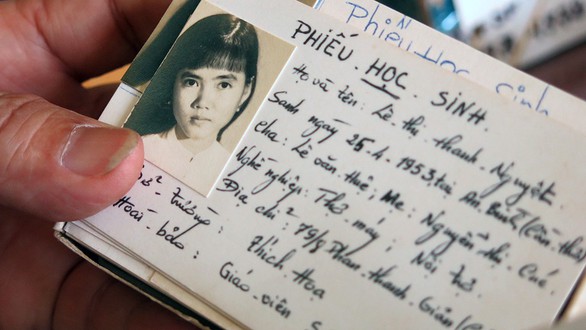 Phiếu Học Sinh
PHIẾU HỌC SINH
Họ và tên: Lê thị thanh Nguyệt
Sanh ngày 25.4.1953 tại An Bình (Cần thơ
cha: Lê văn thê; Mẹ: Nguyễn thị Cúc
Nghề nghiệp: Thợ máy; Nội trợ
Địa chỉ: 79/8 Phan thanh Giản (
Sở trường: Thích Hoa
Hoài-bảo: Giáo viên